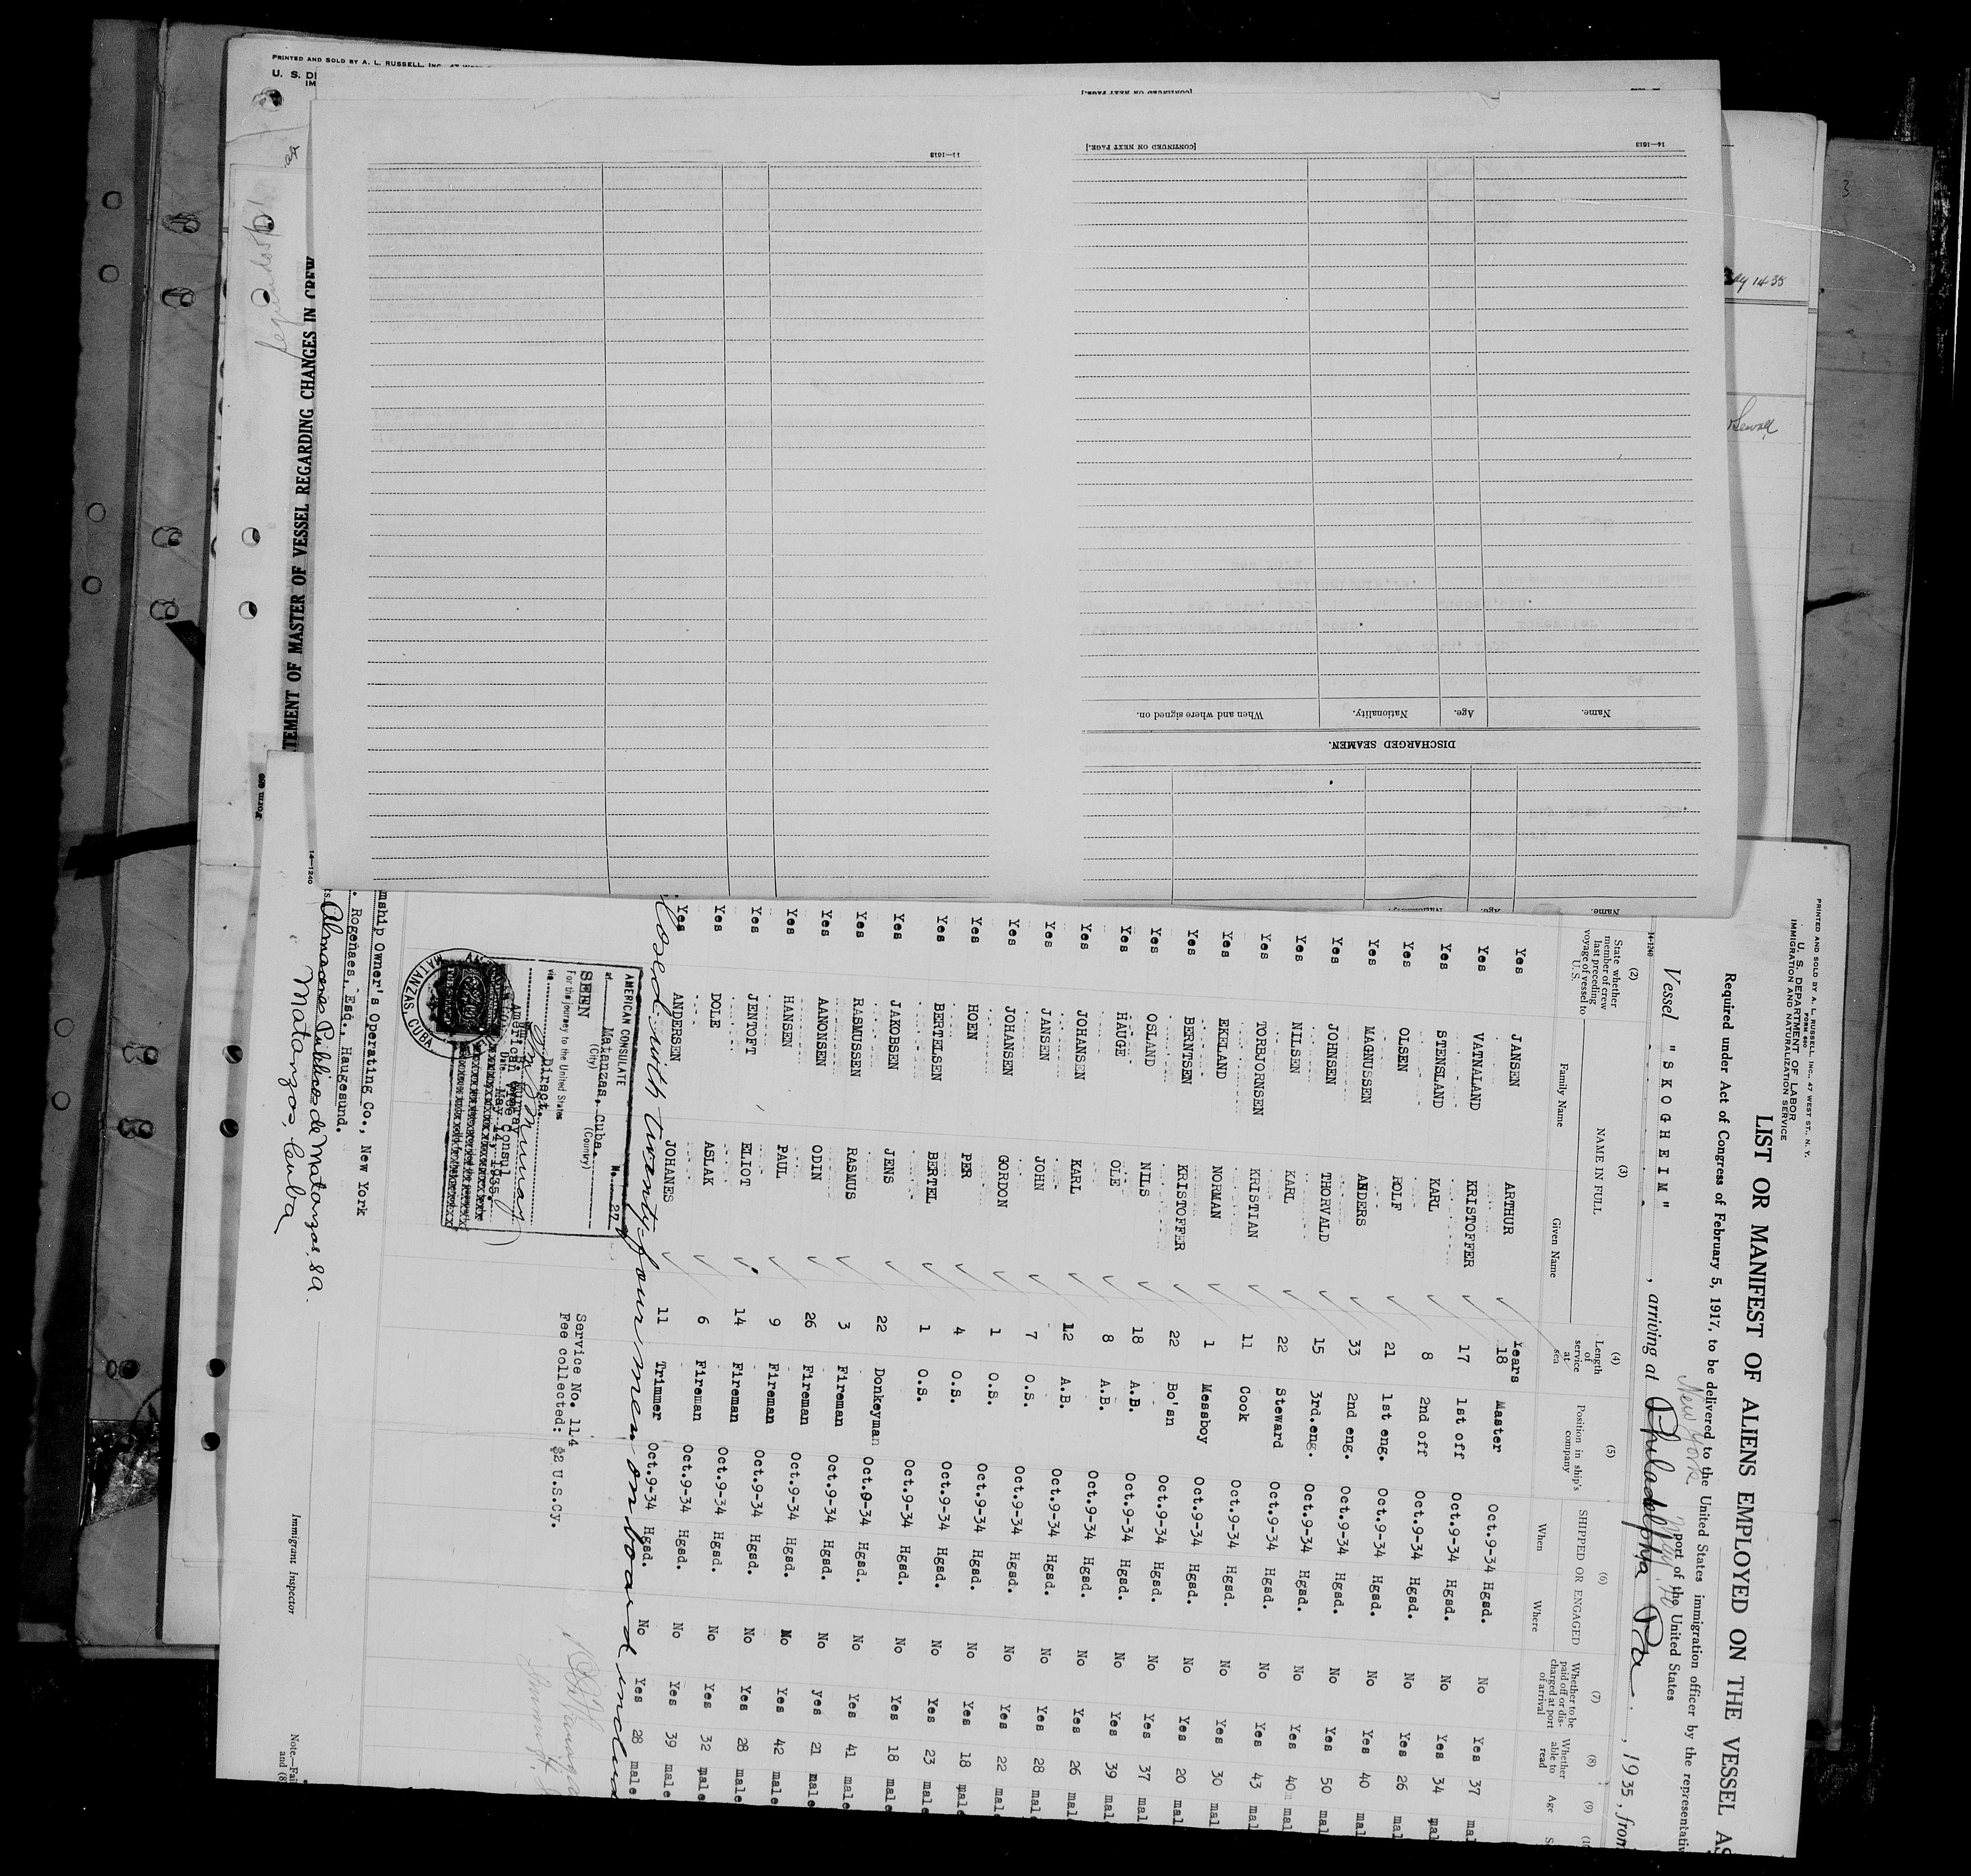 PRINTED AND SOLD BY A. L. RUSSELL, INC., 47 WEST ST., N. Y.
FORM 680
U. S. DEPARTMENT OF LABOR
IMMIGRATION AND NATURALIZATION SERVICE
LIST OR MANIFEST OF ALIENS EMPLOYED ON THE VESSEL AS
Required under Act of Congress of February 5, 1917, to be delivered to the United States immigration officer by the representativ
New York
Vessel "SKOGHEIM", arriving at Philadelphia Pa., 1935, from
port of the United States
14-1240
(2) State whether member of crew last preceding voyage of vessel to U.S.
(3) NAME IN FULL
Family Name Given Name
(4) Length of service at sea
(5) Position in ship's company
(6) SHIPPED OR ENGAGED
When Where
(7) Whether to be paid off or discharged at port of arrival
(8) Whether able to read
(9) Age
Yes JANSEN ARTHUR Years 18 Master Oct.9-34 Hgsd. No Yes 37 mal
Yes VATNALAND KRISTOFFER 17 1st off Oct.9-34 Hgsd. No Yes 34 mal
Yes STENSLAND KARL 8 2nd off Oct.9-34 Hgsd. No Yes 26 mal
Yes OLSEN ROLF 21 1st eng. Oct.9-34 Hgsd. No Yes 40 mal
Yes MAGNUSSEN ANDERS 33 2nd eng. Oct.9-34 Hgsd. No Yes 50 mal
Yes JOHNSEN THORVALD 15 3rd.eng. Oct.9-34 Hgsd. No Yes 40 mal
Yes NILSEN KARL 22 Steward Oct.9-34 Hgsd. No Yes 43 mal
Yes TORBJORNSEN KRISTIAN 11 Cook Oct.9-34 Hgsd. No Yes 30 mal
Yes EKELAND NORMAN 1 Messboy Oct.9-34 Hgsd. No Yes 20 mal
Yes BERNTSEN KRISTOFFER 22 Bo'sn Oct.9-34 Hgsd. No Yes 37 mal
Yes OSLAND NILS 18 A.B. Oct.9-34 Hgsd. No Yes 39 male
Yes HAUGE OLE 8 A.B. Oct.9-34 Hgsd. No Yes 26 mal
Yes JOHANSEN KARL 12 A.B. Oct.9-34 Hgsd. No Yes 28 mal
Yes JANSEN JOHN 7 O.S. Oct.9-34 Hgsd. No Yes 22 male
Yes JOHANSEN GORDON 1 O.S. Oct.9-34 Hgsd. No Yes 18 male
Yes HOEN PER 4 O.S. Oct.9-34 Hgsd. No Yes 23 male
Yes BERTELSEN BERTEL 1 O.S. Oct.9-34 Hgsd. No Yes 18 male
Yes JAKOBSEN JENS 22 Donkeyman Oct.9-34 Hgsd. No Yes 41 male
Yes RASMUSSEN RASMUS 3 Fireman Oct.9-34 Hgsd. No yes 21 male
Yes AANONSEN ODIN 26 Fireman Oct.9-34 Hgsd. No Yes 42 male
Yes HANSEN PAUL 9 Fireman Oct.9-34 Hgsd. No Yes 28 male
Yes JENTOFT ELIOT 14 Fireman Oct.9-34 Hgsd. No Yes 32 male
Yes DOLE ASLAK 6 Fireman Oct.9-34 Hgsd. No Yes 39 male
Yes ANDERSEN JOHANES 11 Trimmer Oct.9-34 Hgsd. No Yes 28 male
losed with twenty four men on board
AMERICAN CONSULATE No. 27
at Matanzas, Cuba.
(City) (Country)
SEEN
For the journey to the United States
via Direct.
American Vice Consul
Date May 14, 1935.
MATANZAS, CUBA
Service No. 114
Fee collected: $2 U.S.Cy.
mship Owner's Operating Co., New York
. Rogenaes, Esq., Haugesund.
Almacenes Publicos de Matanzas, SA.
Matanzas, Cuba
Immigrant Inspector
Note.—Fai
and (8
14—1240
PRINTED AND SOLD BY A. L. RUSSELL, INC., 47 WES
U. S. DE
IM
TEMENT OF MASTER OF VESSEL REGARDING CHANGES IN CREW
Form 689
Name. Age. Nationality. When and where signed on.
DISCHARGED SEAMEN.
Name. Age. Nationality.
[CONTINUED ON NEXT PAGE.]
14—1613
11—1613
[CONTINUED ON NEXT PAGE.]
ay 14 35
Sewall
3